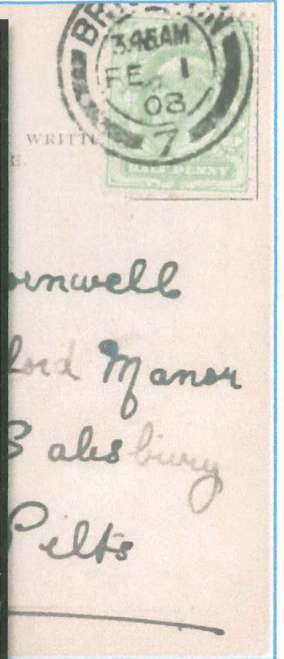 3.15AM
FE 1
03
7
WRITT
E.
HALF PENNY
ornwell
ford Manor
Salesbury
Pilts